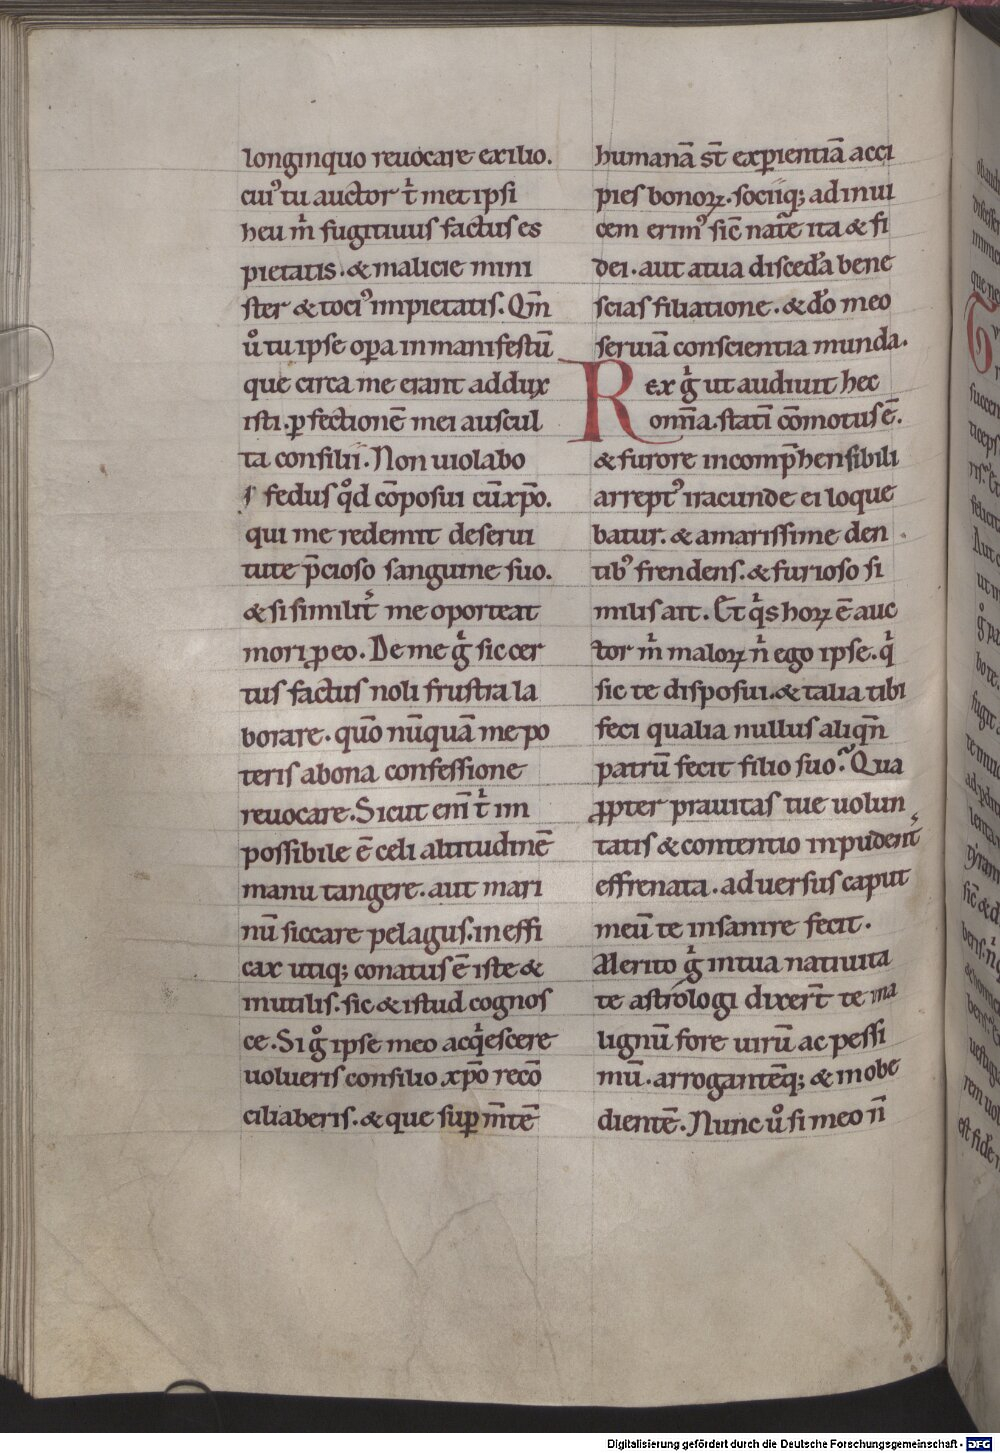 longinquo reuocare exilio.
cui᾽ tu auctor t̄ met ipsi
heu m̄ fugitiuus factus es
pietatis. & malicie mini
ster & toci᾽ impietatis. Qm̄
ů tu ipse opa in manifestū
que circa me erant addux
isti. ꝑfectionē mei auscul
ta consilii. Non uiolabo
fedus qd̊ cōposui cū xp̄o.
qui me redemit deserui
tute p̄cioso sanguine suo.
& si similit̄ me oporteat
mori ꝓ eo. De me g̍ sic cer
tus factus noli frustra la
borare. quō nūquā me po
teris a bona confessione
reuocare. Sicut em̄ t̄ im
possibile ē celi altitudinē
manu tangere. aut mari
nū siccare pelagus. ineffi
cax utiq; conatus ē iste &
inutilis. sic & istud cognos
ce. Si g̊ ipse meo acq̍escere
uolueris consilio xp̄o recō
ciliaberis. & que suꝑ m̄tē
humanā st̄ exꝑientiā acci
pies bonoꝝ. sociiq; ad inui
cem erim᾽ sic̄ nat̄e ita & fi
dei. aut a tua disced̄a bene
scias filiatione. & dō meo
seruiā conscientia munda.
Rex g̍ ut audiuit hec
om̄ia. statī cōmotus ē.
& furore incomp̄hensibili
arrept᾽ iracunde ei loque
batur. & amarissime den
tib᾽ frendens. & furioso si
milis ait. Et q̍s hoꝝ ē auc
tor m̍ maloꝝ n̍ ego ipse. q̍
sic te disposui. & talia tibi
feci qualia nullus aliqn̄
patrū fecit filio suo. Qua
ꝓpter prauitas tue uolun
tatis & contentio inpudent̄
effrenata. aduersus caput
meū te insanire fecit.
Merito g̍ in tua natiuita
te astrologi dixer̄t te ma
lignū fore uirū ac pessi
mū. arrogantēq; & inobe
dientē. Nunc ů si meo n̄
Digitalisierung gefördert durch die Deutsche Forschungsgemeinschaft - DFG